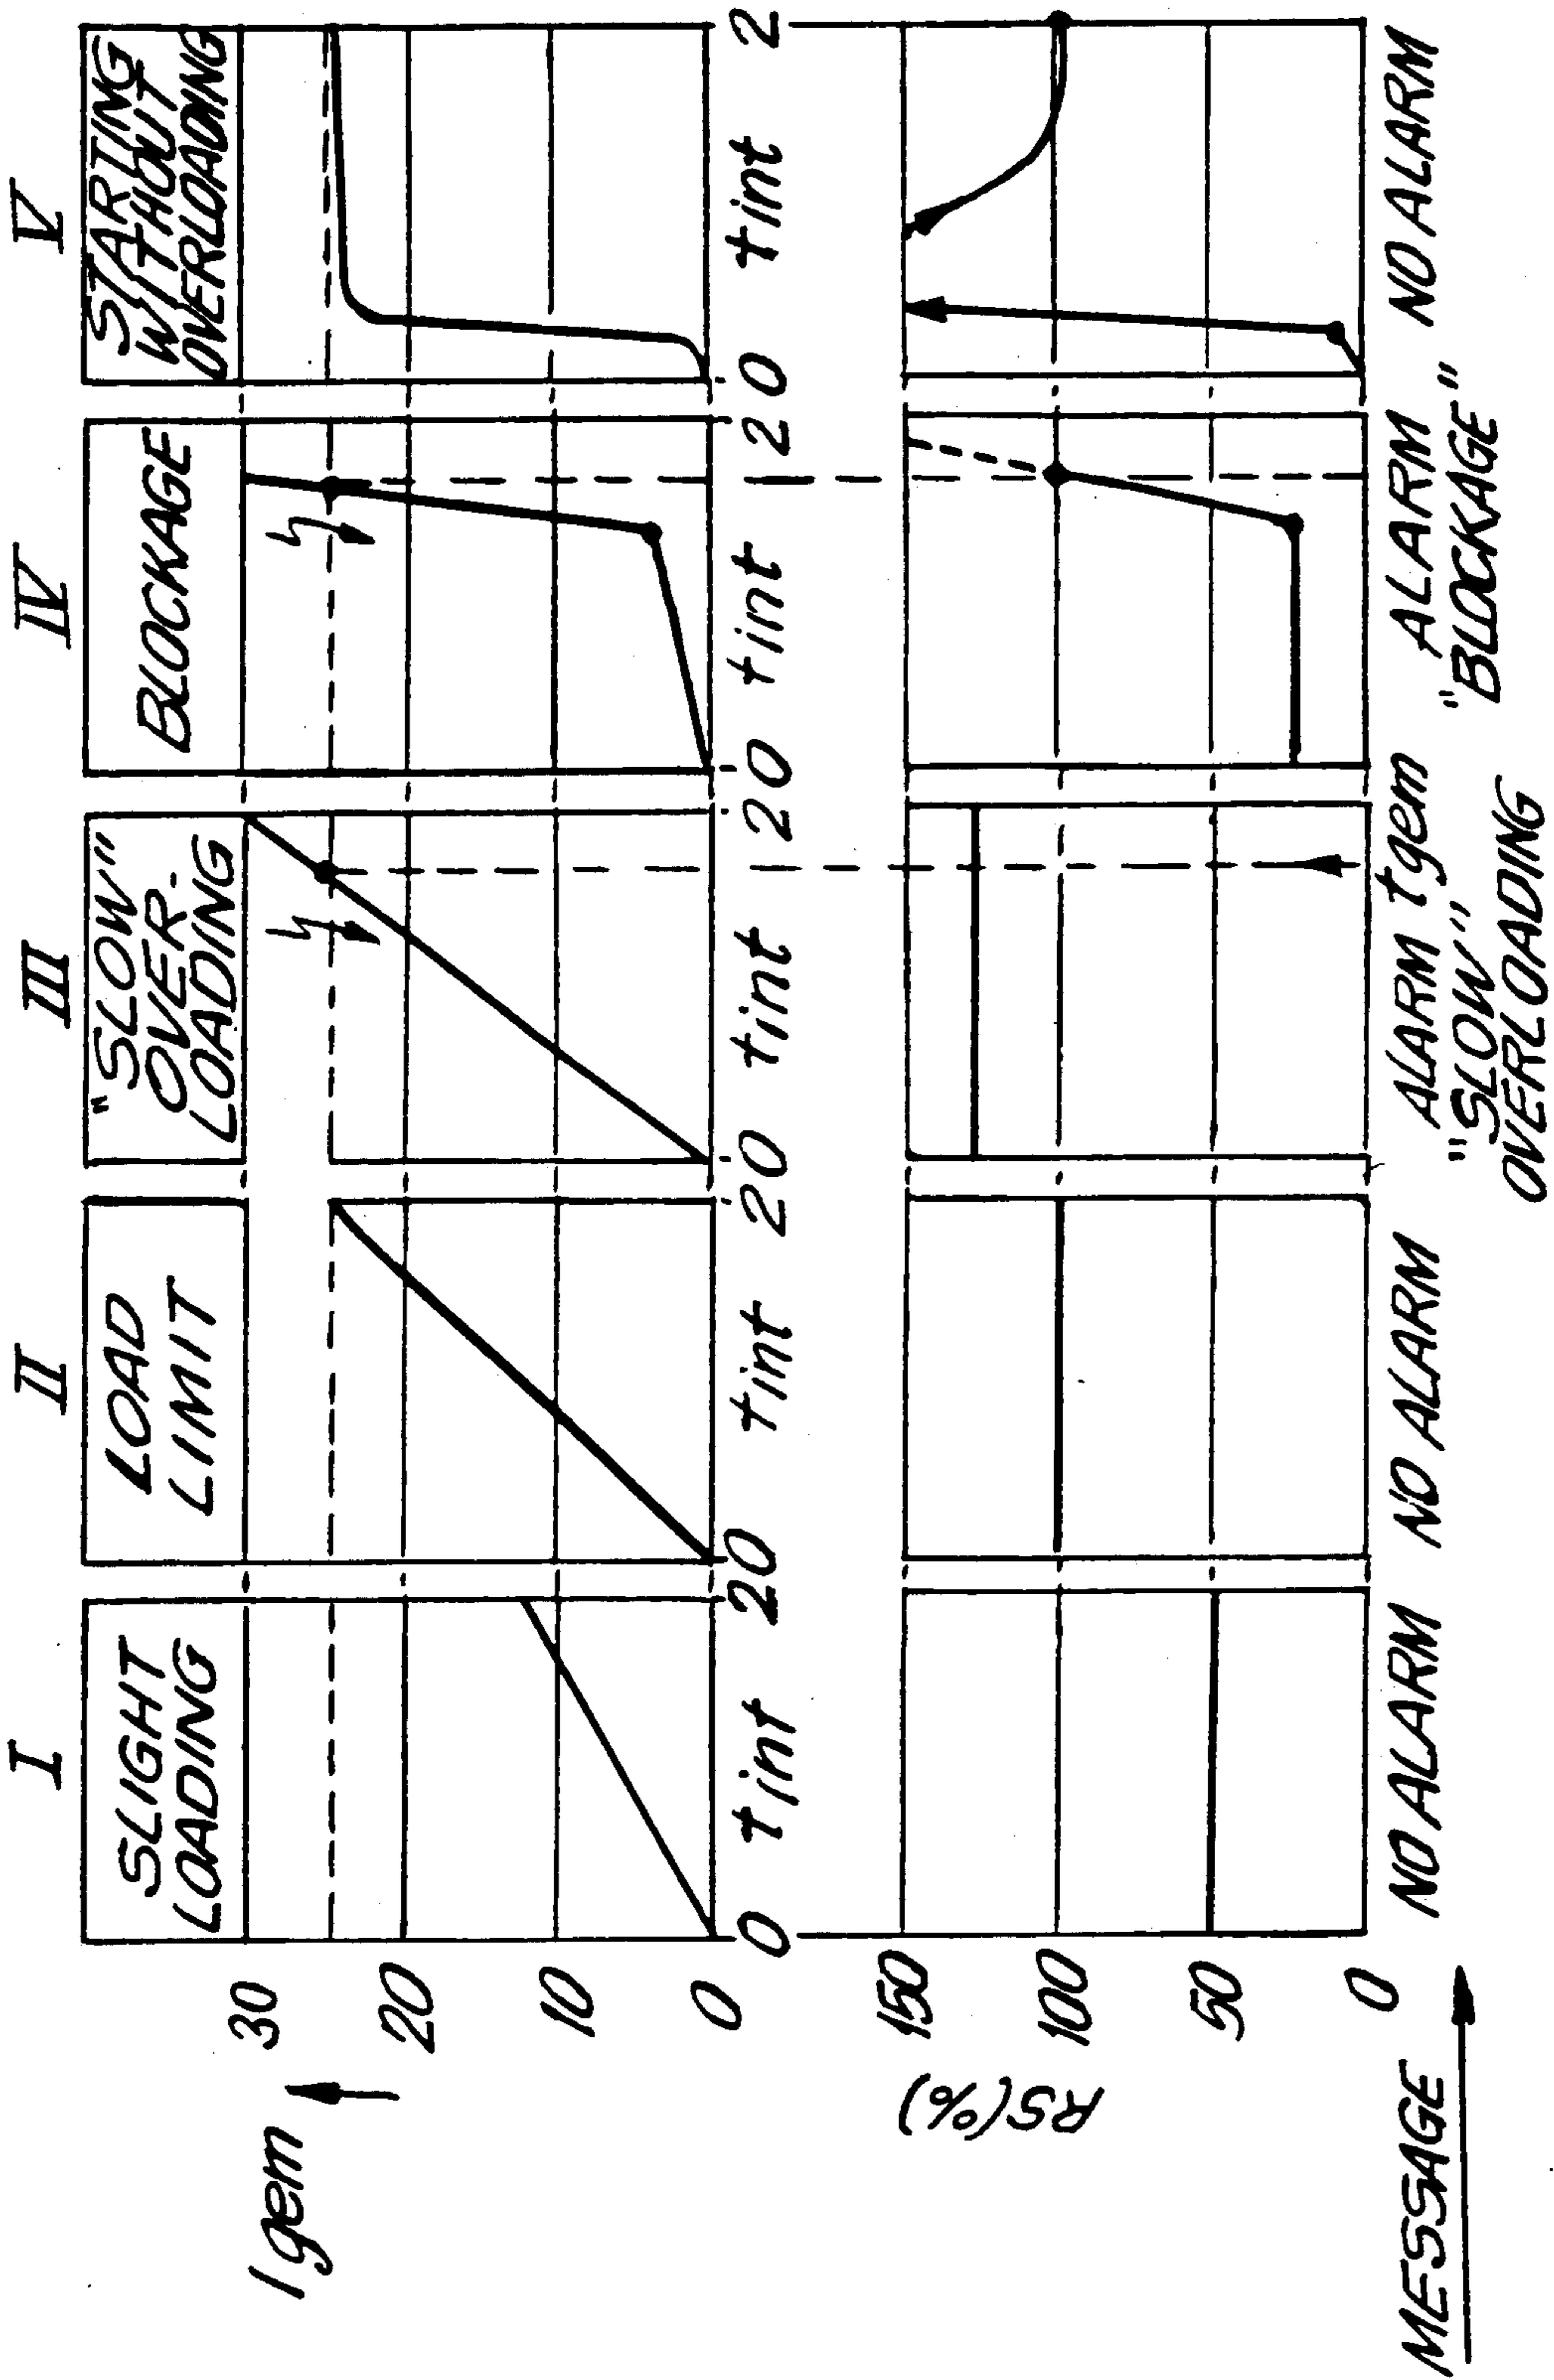 I
II
III
IV
V
SLIGHT
LOADING
LOAD
LIMIT
"SLOW"
OVER-
LOADING
BLOCKAGE
STARTING
WITHOUT
OVERLOADING
I gem
30
20
10
0
0 tint 20 tint 20 tint 20 tint 20 tint 2
RS(%)
150
100
50
0
MESSAGE
NO ALARM
NO ALARM
ALARM tgem
"SLOW"
OVERLOADING
ALARM
"BLOCKAGE"
NO ALARM